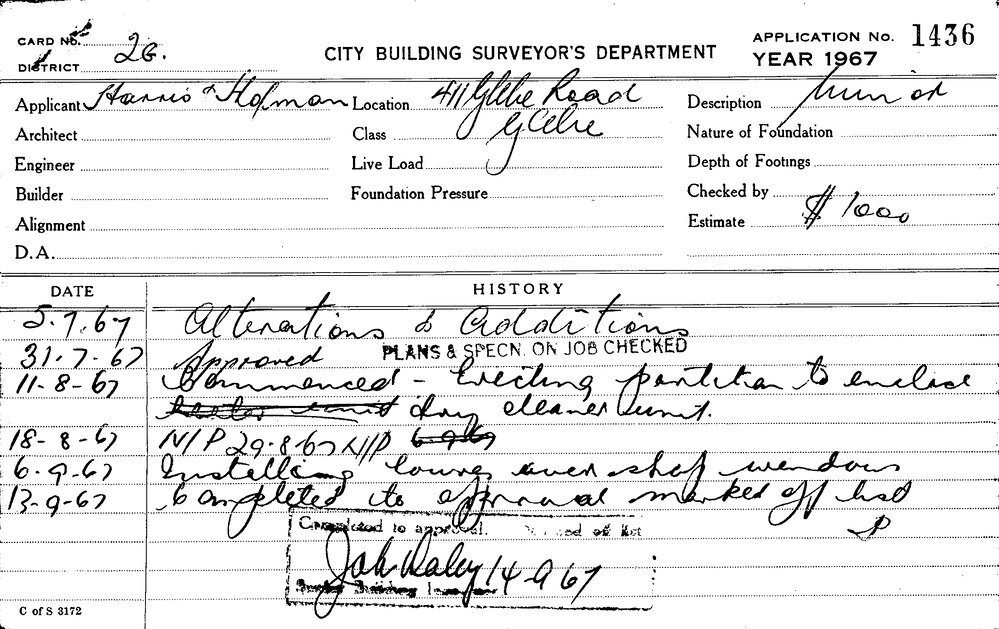 CARD No. 
DISTRICT 26.
CITY BUILDING SURVEYOR'S DEPARTMENT
APPLICATION No. 1436
YEAR 1967
Applicant Harris & Hofman Location 411 Glebe Road Description Minor
Architect Class Glebe Nature of Foundation
Engineer Live Load Depth of Footings
Builder Foundation Pressure Checked by
Alignment Estimate $ 1000
D.A.
DATE HISTORY
5.7.67 Alterations & Additions
31-7-67 Approved PLANS & SPECN. ON JOB CHECKED
11-8-67 Commenced - Erecting partition to enclose
dry cleaner unit.
18-8-67 N/P 29-8-67 N/P 6-9-67
6-9-67 Installing louvre over shop windows
13-9-67 Completed to approval marked off list
Completed to approval. off list
14-9-67
Building
C of S 3172